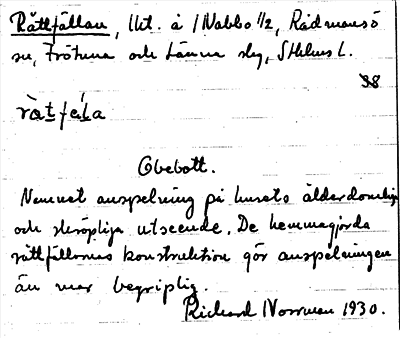 Råttfällan, lht. å 1 Nabbo 1/2, Rådmansö
sn, Frötuna och Länna slg, Sthlms l.
38
ràt fɛ́la
Obebott.
Namnet anspelning på husets ålderdomliga
och skröpliga utseende. De hemmagjorda
råttfällornas konstruktion gör anspelningen
än mer begriplig.
Richard Norrman 1930.